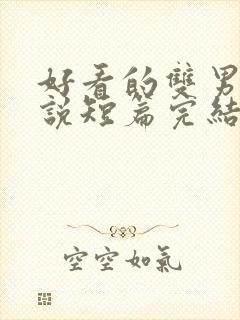 好看的雙男
說短篇完結
空空如氣